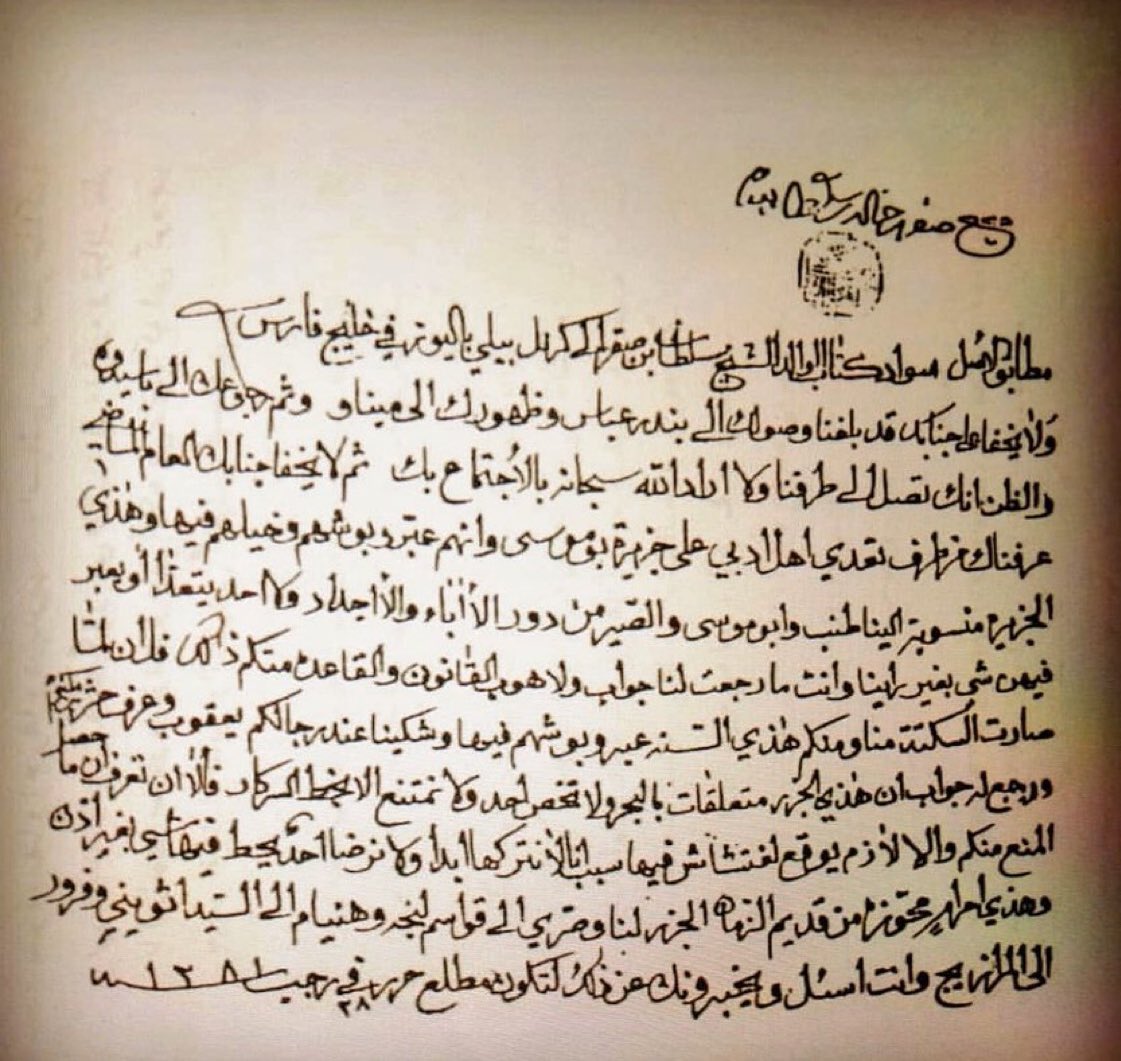 صحيح صقر بن خالد بن سلطان بيده
مطابق الاصل سواد كتاب الوالد الشيخ سلطان بن صقر الى كرنل بيلي باليوز في خليج فارس
ولا يخفا على جنابك قد بلغنا وصولك الى بندر عباس وظهورك الى ميناو وثم رجوعك الى باسيدوه
والظن انك تصل الى طرفنا ولا اراد الله سبحانه بالاجتماع بك ثم لا يخفا جنابك العام الماضي
عرفناك من طرف تعدي اهل ادبي على جزيرة بوموسى وانهم عبّرو بوشهم وخيلهم فيها وهذي
الجزيره منسوبة الينا طنب وابوموسى والصّير من دور الأباء والأجداد ولا احد يتعدا او يعبر
فيهن شي بغير رأينا وانت ما رجعت لنا جواب ولا هوب القانون والقاعده منكم ذلك فلأن لمّا
صارت السكتة منا ومنكم هذي السنه عبرو بوشهم فيها وشكينا عند رجالكم يعقوب وعرف حضرتكم
ورجع له جواب ان هذي الجزر متعلقات بالبحر ولا تخص احد ولا تمتنع الا بخط السركار فألأن تعرف ان ما حصل
المنع منكم والا لازم يوقع اغتشاش فيها سبب انا لا نتركها ابدا ولا نرضا احد يحط فيها شي بغير اذن
وهذي امرار محوزه من قديم الزمان الجزر لنا وصري الى قواسم لنجه وهنيام الى السيد اثويني وفرور
الى المرازيج وانت اسئل ويخبرونك عن ذلك لتكون مطلع حرر في ٢٨ رجب سنة ١٢٨١